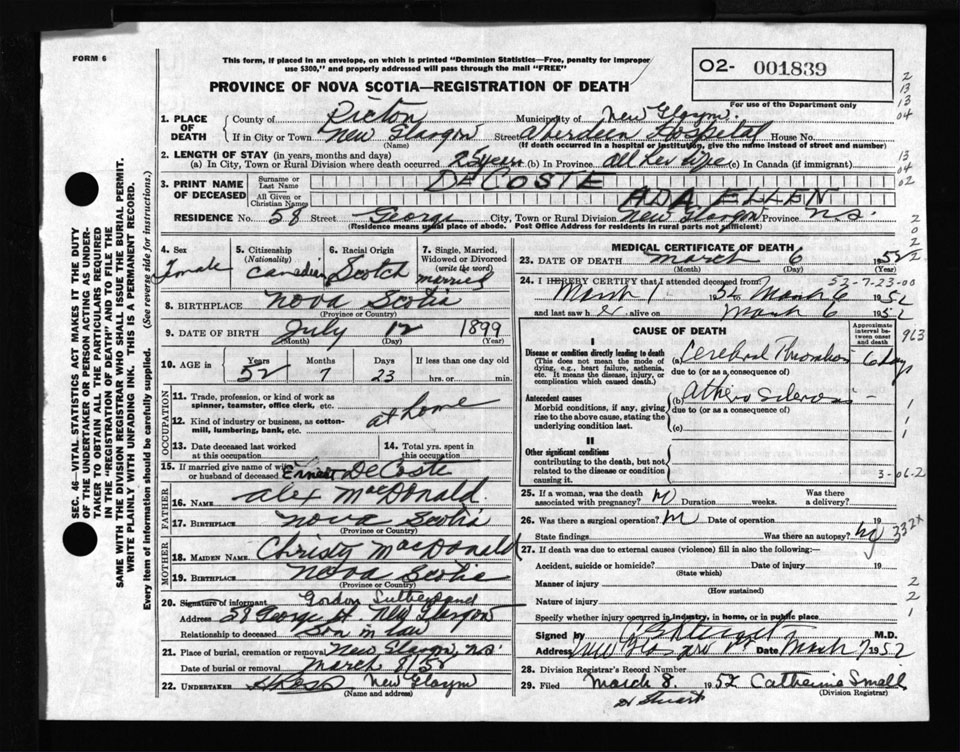 FORM 6
This form, if placed in an envelope, on which is printed "Dominion Statistics—Free, penalty for improper
use $300," and properly addressed will pass through the mail "FREE"
PROVINCE OF NOVA SCOTIA—REGISTRATION OF DEATH
O2- 001839
For use of the Department only
1. PLACE OF DEATH
County of Pictou Municipality of New Glasgow.
If in City or Town New Glasgow Street Aberdeen Hospital House No.
(Name) (If death occurred in a hospital or institution, give the name instead of street and number)
2. LENGTH OF STAY (in years, months and days)
(a) In City, Town or Rural Division where death occurred 25 years (b) In Province all her life (c) In Canada (if immigrant)
3. PRINT NAME OF DECEASED
Surname or Last Name DECOSTE
All Given or Christian Names ADA ELLEN
RESIDENCE No. 58 Street George City, Town or Rural Division New Glasgow Province N.S.
(Residence means usual place of abode. Post Office Address for residents in rural parts not sufficient)
4. Sex Female
5. Citizenship (Nationality) Canadian
6. Racial Origin Scotch
7. Single, Married, Widowed or Divorced (write the word) married
8. BIRTHPLACE Nova Scotia
(Province or Country)
9. DATE OF BIRTH July 12 1899
(Month) (Day) (Year)
10. AGE in Years 52 Months 7 Days 23 If less than one day old hrs. or min.
OCCUPATION
11. Trade, profession, or kind of work as spinner, teamster, office clerk, etc.
12. Kind of industry or business, as cotton-mill, lumbering, bank, etc. at home
13. Date deceased last worked at this occupation
14. Total yrs. spent in this occupation
15. If married give name of wife or husband of deceased Ernest DeCoste
FATHER
16. NAME Alex MacDonald.
17. BIRTHPLACE Nova Scotia
(Province or Country)
MOTHER
18. MAIDEN NAME Christy MacDonald
19. BIRTHPLACE Nova Scotia
(Province or Country)
20. Signature of informant Gordon Sutherland
Address 58 George St. New Glasgow
Relationship to deceased Son in law
21. Place of burial, cremation or removal New Glasgow N.S.
Date of burial or removal March 8/52
22. UNDERTAKER New Glasgow
(Name and address)
MEDICAL CERTIFICATE OF DEATH
23. DATE OF DEATH March 6 1952
(Month) (Day) (Year)
24. I HEREBY CERTIFY that I attended deceased from 52-7-23-00
March 1 1952 to March 6 1952
and last saw her alive on March 6 1952
CAUSE OF DEATH
Approximate interval between onset and death
I
Disease or condition directly leading to death (a) Cerebral Thrombosis 6 days
(This does not mean the mode of dying, e.g., heart failure, asthenia, etc. It means the disease, injury, or complication which caused death.)
due to (or as a consequence of)
Antecedent causes (b) Athero Sclerosis
Morbid conditions, if any, giving rise to the above cause, stating the underlying condition last.
due to (or as a consequence of)
(c)
II
Other significant conditions
contributing to the death, but not related to the disease or condition causing it.
3-06-2
25. If a woman, was the death associated with pregnancy? Duration weeks. Was there a delivery?
26. Was there a surgical operation? Date of operation 19
State findings Was there an autopsy? 332x
27. If death was due to external causes (violence) fill in also the following:—
Accident, suicide or homicide? Date of injury 19
(State which)
Manner of injury
(How sustained)
Nature of injury
Specify whether injury occurred in industry, in home, or in public place
Signed by M.D.
Address New Glasgow Date March 7 1952
28. Division Registrar's Record Number
29. Filed March 8. 1952 Catherine Small
(Division Registrar)
H Stuart
SEC. 46—VITAL STATISTICS ACT MAKES IT THE DUTY
OF THE UNDERTAKER OR PERSON ACTING AS UNDER-
TAKER TO OBTAIN ALL THE PARTICULARS REQUIRED
IN THE "REGISTRATION OF DEATH" AND TO FILE THE
SAME WITH THE DIVISION REGISTRAR WHO SHALL ISSUE THE BURIAL PERMIT.
WRITE PLAINLY WITH UNFADING INK. THIS IS A PERMANENT RECORD.
Every item of information should be carefully supplied. (See reverse side for instructions.)
2
13
13
04
13
04
02
2
0
2
2
963
1
1
1
2
2
1